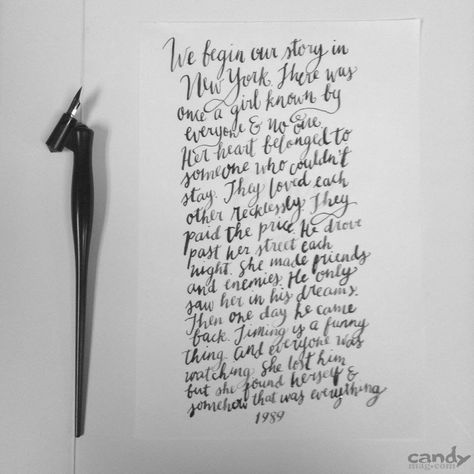 We begin our story in
New York. There was
once a girl known by
everyone & no one
Her heart belonged to
someone who couldn't
stay. They loved each
other recklessly. They
paid the price. He drove
past her street each
night. She made friends
and enemies. He only
saw her in his dreams.
Then one day he came
back. Timing is a funny
thing. And everyone was
watching. She lost him
but she found herself &
somehow that was everything
1989
candy
mag.com